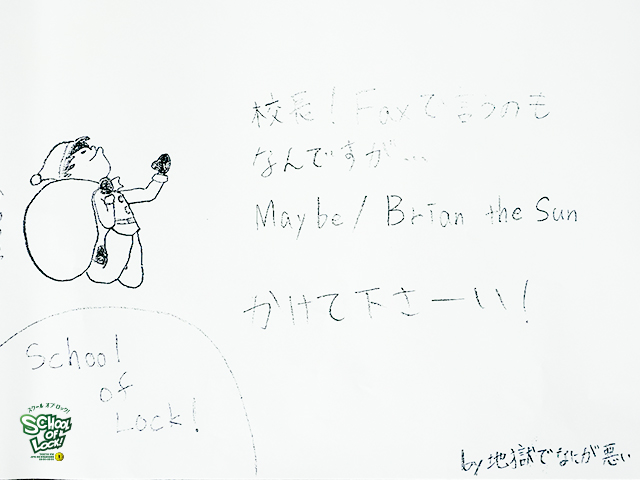 校長！Faxで言うのも
なんですが…
Maybe/ Brian the Sun
かけて下さーい！
School
of
Lock!
スクール オブ ロック！
SCHOOL
OF
LOCK!
by 地獄でなにが悪い